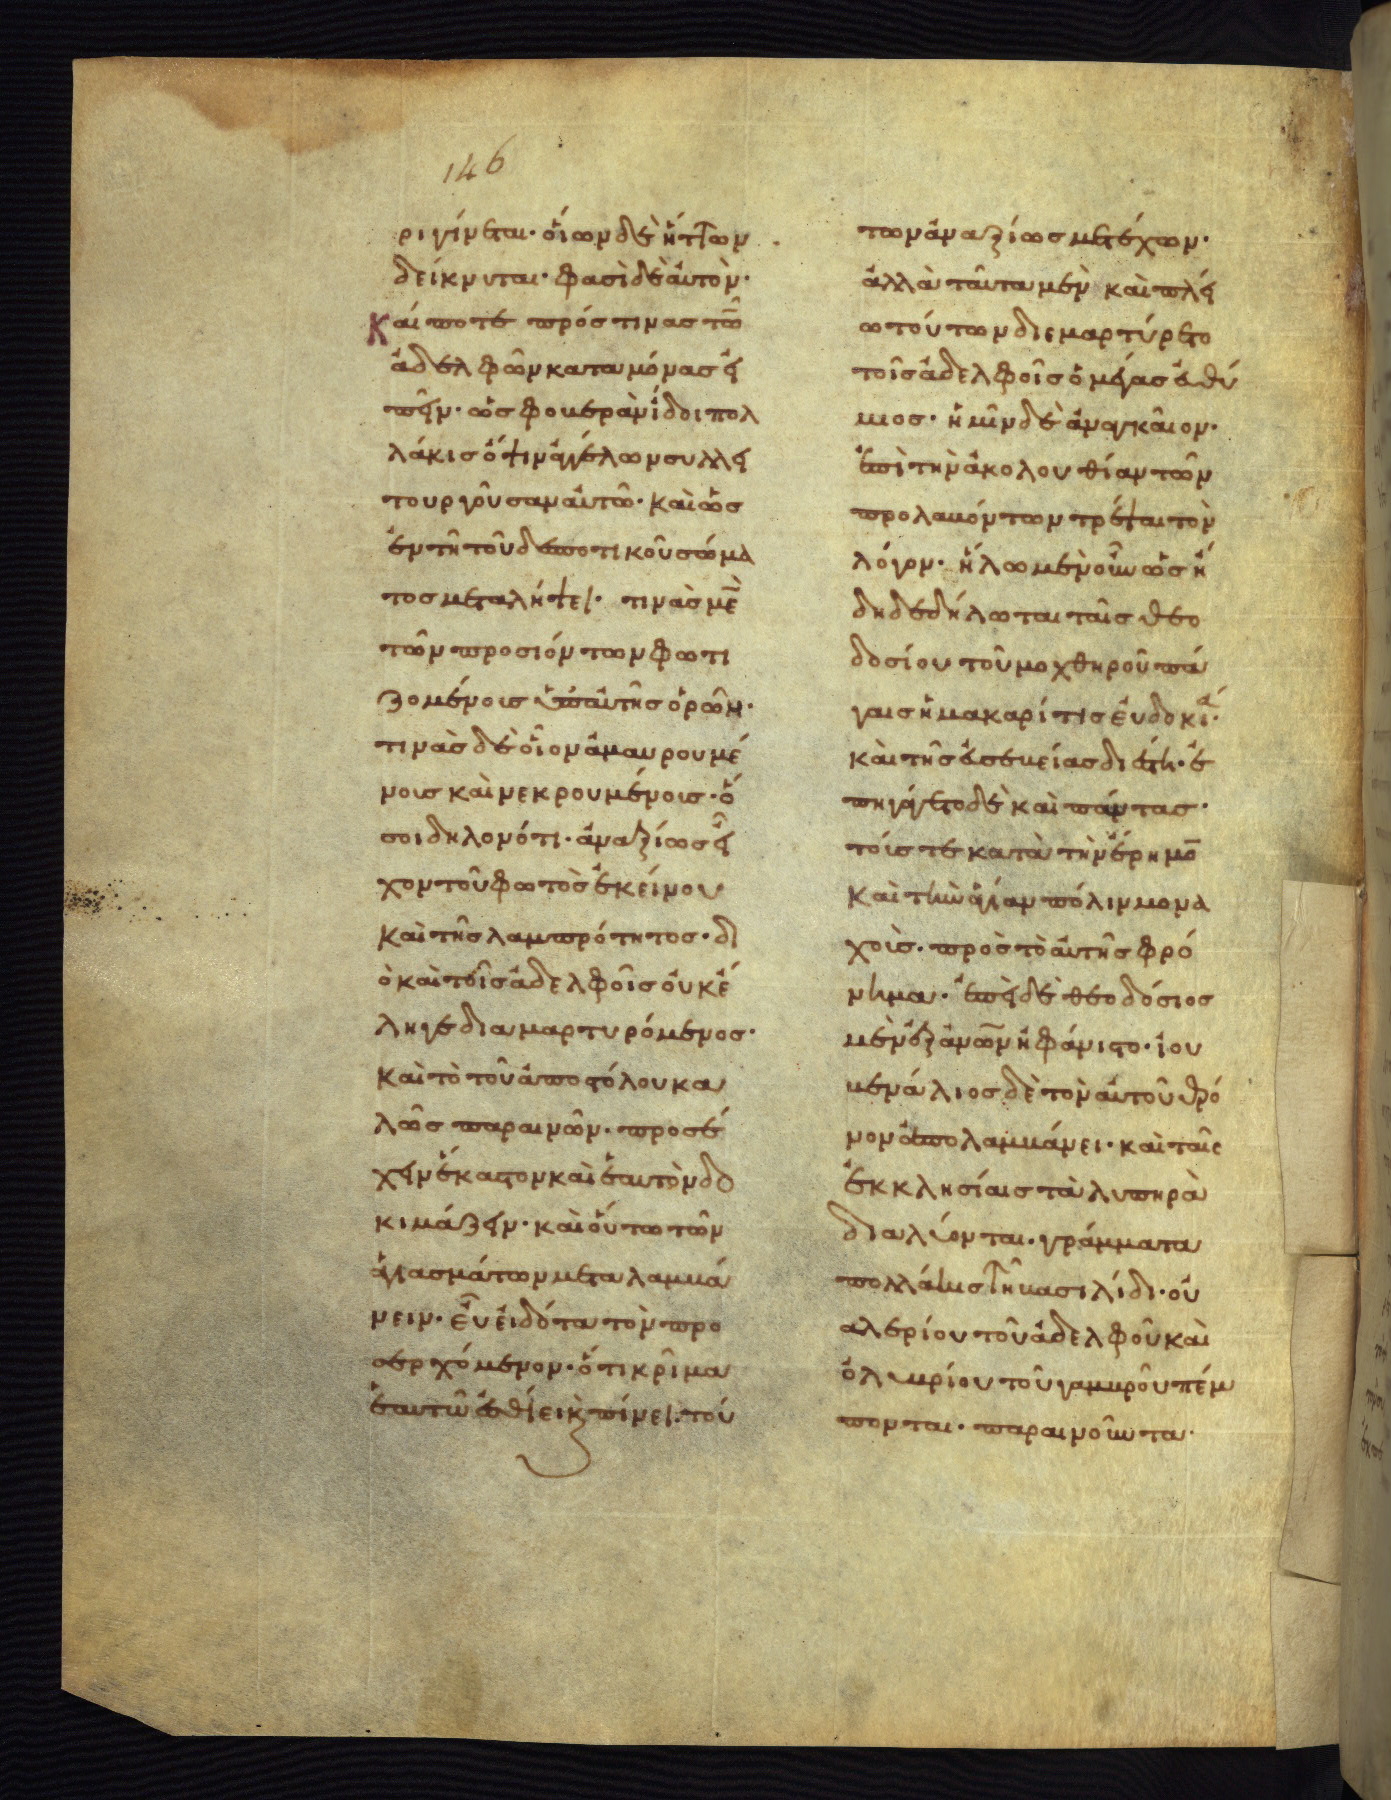 146
ριγίνεται· οἵων δὲ ἥττων
δείκνυται· φασὶ δὲ ἀυτὸν·
Καί ποτε πρός τινας τῶ
ἀδελφῶν καταμόνας ἐι
πεῖν· ὡς φοβερὰν ἴδοι πολ
λάκις ὄψιν ἀγγέλων συλλει
τουργοῦσαν ἀυτῶ· καὶ ὡς
ἐν τῆ τοῦ δεσποτικοῦ σώμα
τος μεταλήψει· τινὰς μὲ
τῶν προσιόντων φωτι
ζομένοις ὑπ ἀυτῆς ὁρῶν·
τινὰς δὲ ὁῖον ἀμαυρουμέ
νοις καὶ νεκρουμένοις· ὅ
σοι δηλονότι· ἀναξίως εἶ
χον τοῦ φωτὸς ἐκείνου
καὶ τῆς λαμπρότητος· δι
ὸ καὶ τοῖς ἀδελφοῖς ὀυκ ἔ
ληγε διαμαρτυρόμενος·
καὶ τὸ τοῦ ἀποστόλου κα
λῶς παραινῶν· προσέ
χειν ἕκαστον καὶ ἑαυτὸν δο
κιμάζειν· καὶ ὅυτω τῶν
ἁγιασμάτων μεταλαμβά
νειν· ἐῦ ἐιδότα τὸν προ
σερχόμενον· ὅτι κρῖμα
ἑαυτῶ ἐσθίει κ πίνει· τού
των ἀναξίως μετέχων·
ἀλλὰ ταῦτα μὲν καὶ πλεί
ω τούτων διεμαρτύρετο
τοῖς ἀδελφοῖς ὁ μέγας ἐυθύ
μιος· ἡμῖν δὲ ἀναγκαῖον·
ἐπὶ τὴν ἀκολουθίαν τῶν
προλαβόντων τρέψαι τὸν
λόγον· ἥλω μὲν οὖν ὡς ἤ
δη δεδήλωται ταῖς θεο
δοσίου τοῦ μοχθηροῦ πά
γαις ἡ μακαρίτις ἐυδοκία·
καὶ τῆς ἀσεβείας διέπι· ἐ
πηγάγετο δὲ καὶ πάντας·
τόις τε κατὰ τὴν ἔρημο
καὶ τὴν ἁγίαν πόλιν μονα
χοὶς· πρὸς τὸ ἀυτῆς φρό
νημα· ἐπεὶ δὲ θεοδόσιος
μὲν ἐξ ἀνων ἠφάνιστο· ἰου
βενάλιος δὲ τὸν ἀυτοῦ θρό
νον ἀπολαμβάνει· καὶ ταῖς
ἐκκλησίαις τὰ λυπηρὰ
διαλύονται· γράμματα
πολλάκις τῆ βασιλίδι· ὀυ
αλερίου τοῦ ἀδελφοῦ καὶ
ὀλυβρίου τοῦ γαμβροῦ πέμ
πονται· παραινοῦντα·